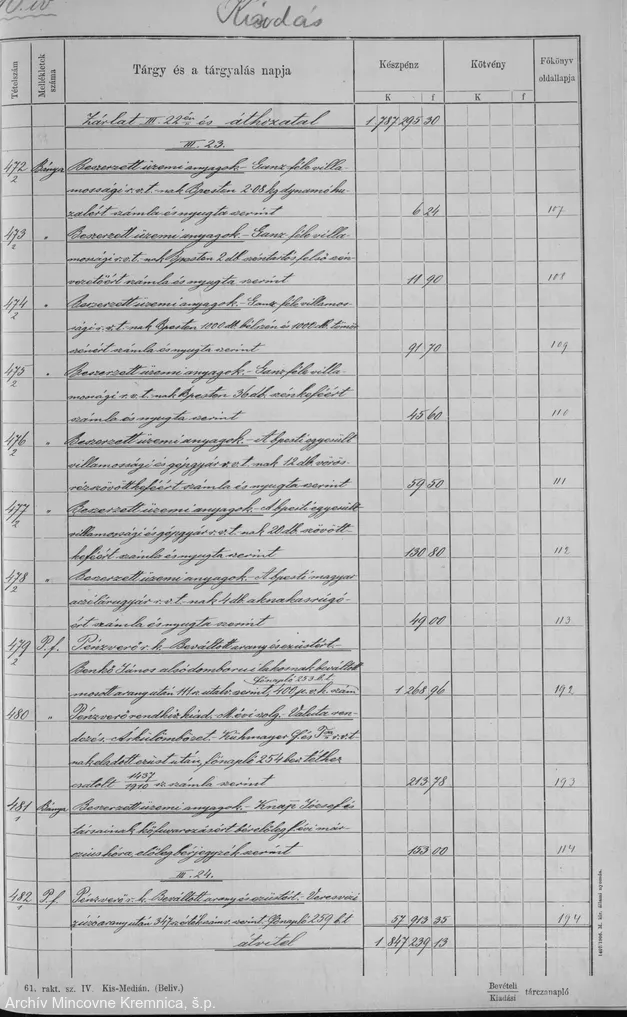 10. ív
Kiadás
Tételszám
Mellékletek száma
Tárgy és a tárgyalás napja
Készpénz
Kötvény
Főkönyv oldallapja
K f K f
Zárlat III. 22én és áthozatal 1 787 295 30
III. 23.
472/2 Bánya Beszerzett üzemi anyagok.- Ganz féle villa-
mossági r.v.t.-nak Bpesten 2·08 kg dynamóhu-
zalért számla és nyugta szerint 6 24 107
473/2 " Beszerzett üzemi anyagok.- Ganz féle villa-
mossági r.v.t. nak Bpesten 2 db. széntartós felső szén-
vezetőért számla és nyugta szerint 11 90 108
474/2 " Beszerzett üzemi anyagok.- Ganz féle villamos-
sági r.v.t-nak Bpesten 1000 db. bélszén és 1000 db. tömör
szénért számla és nyugta szerint 91 70 109
475/2 " Beszerzett üzemi anyagok.- Ganz féle villa-
mossági r.v.t.-nak Bpesten 36 db. szénkeféért
számla és nyugta szerint 45 60 110
476/2 " Beszerzett üzemi anyagok.- A bpesti egyesült
villamossági és gépgyár r.v.t.-nak 12 db. vörös-
rézszövött keféért számla és nyugta szerint 59 50 111
477/2 " Beszerzett üzemi anyagok.- A bpesti egyesült
villamossági és gépgyár r.v.t. nak 20 db. szövött-
keféért számla és nyugta szerint 130 80 112
478/2 " Beszerzett üzemi anyagok.- A bpesti magyar
aczélárugyár r.v.t.-nak 4 db. aknakasrúgó-
ért számla és nyugta szerint 49 00 113
479/2 P.f. Pénzverő r.k. Beváltott arany és ezüstért.-
Benkő János alsódomborui lakosnak beváltott
főnapló 253 b.t.
mosott arany után 111 sz. utalv. szerint, 400 p.v.h. szám 1 268 96 192
480 " Pénzverő rendk. kiad.- Mévi szolg.- Valuta ren-
dezés.- Árkülömbözet.- Kühmayer F. és Tsa r.v.t
nak eladott ezüst után, főnapló 254 bev. téthez
csatolt 1437/1910 sz. számla szerint 213 78 193
481/1 Bánya Beszerzett üzemi anyagok.- Knapp József és
társainak kőfuvarzásért béreloleg f. évi már-
czius hóra, előleg bérjegyzék szerint 153 00 114
III. 24.
482/1 P.f. Pénzverő r.k. Beváltott arany és ezüstért.- Verespataki
zúzóarany után 347 sz. étek szám. szerint. Főnapló 259 b.t. 57 913 35 194
átvitel 1 847 239 13
61. rakt. sz. IV. Kis-Medián. (Beliv.)
Bevételi
Kiadási tárczanapló
Archív Mincovne Kremnica, š.p.